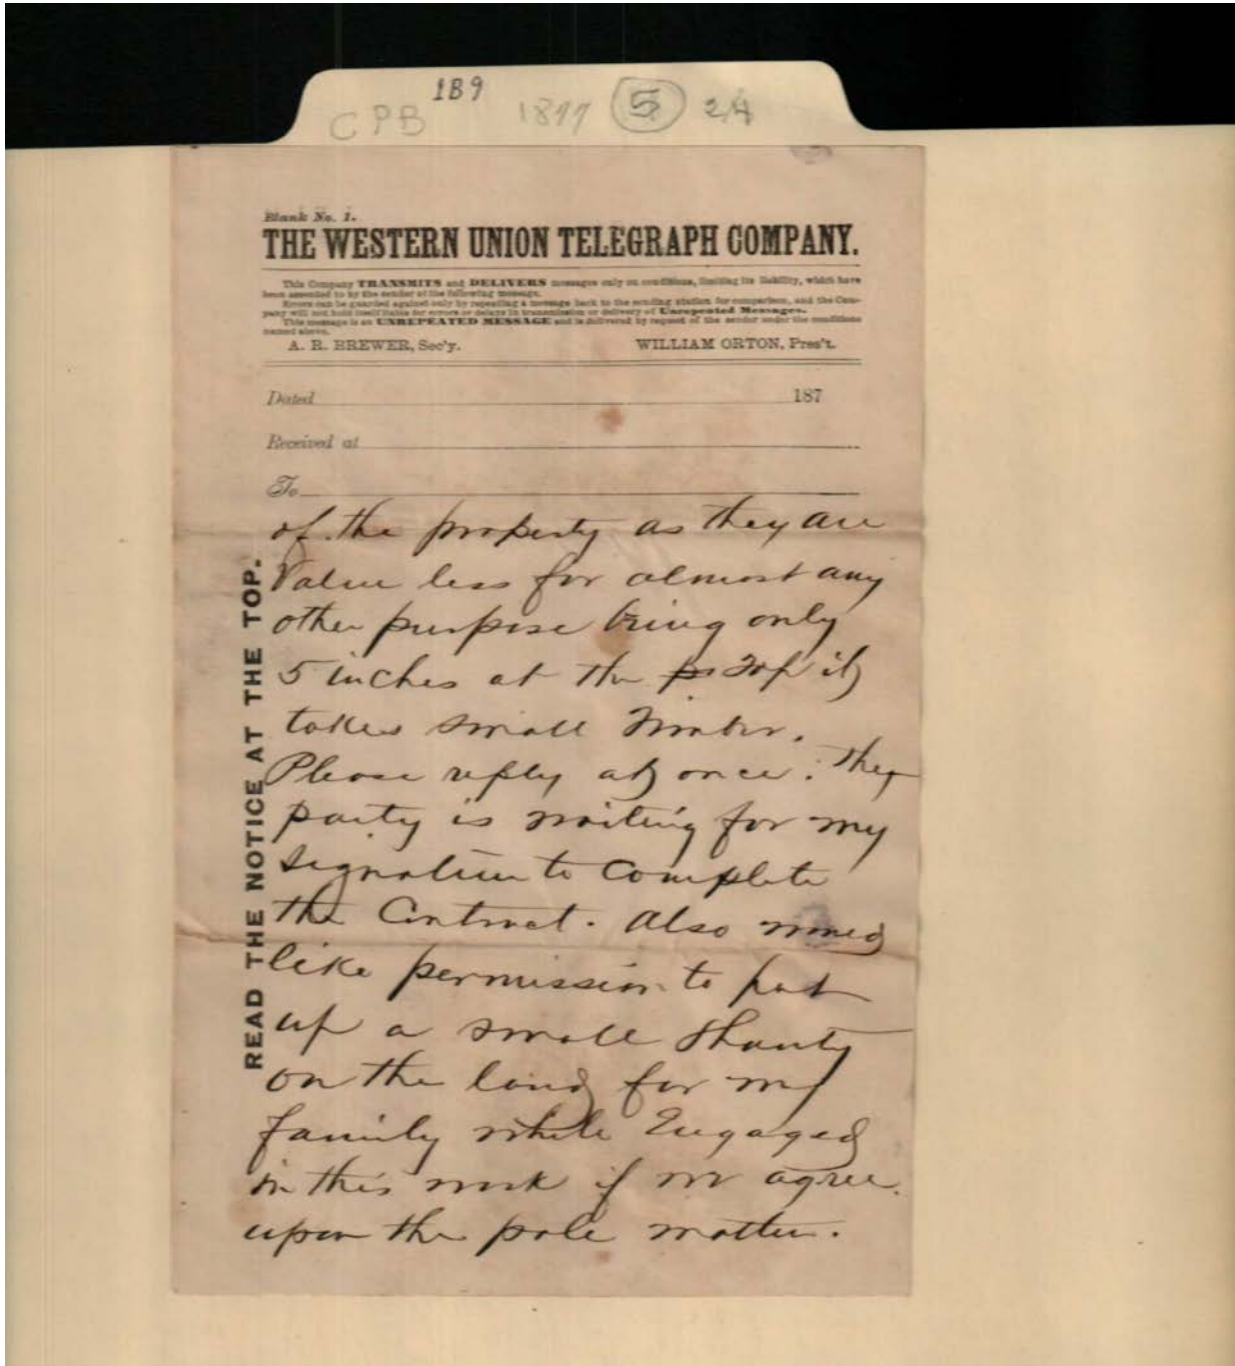 CPB 189 1877 5 24
Blank No. 1.
THE WESTERN UNION TELEGRAPH COMPANY.
This Company TRANSMITS and DELIVERS messages only on conditions, limiting its liability, which have
been assented to by the sender of the following message.
Errors can be guarded against only by repeating a message back to the sending station for comparison, and the Com-
pany will not hold itself liable for errors or delays in transmission or delivery of Unrepeated Messages.
This message is an UNREPEATED MESSAGE and is delivered by request of the sender under the conditions
named above.
A. R. BREWER, Sec'y. WILLIAM ORTON, Pres't.
Dated 187
Received at
To
READ THE NOTICE AT THE TOP.
of the property as they are
Value less for almost any
other purpose being only
5 inches at the top it
takes small timber.
Please reply at once. The
party is waiting for my
signature to Complete
the Contract. Also would
like permission to put
up a small Shanty
on the land for my
family while Engaged
in this work if we agree
upon the pole matter.